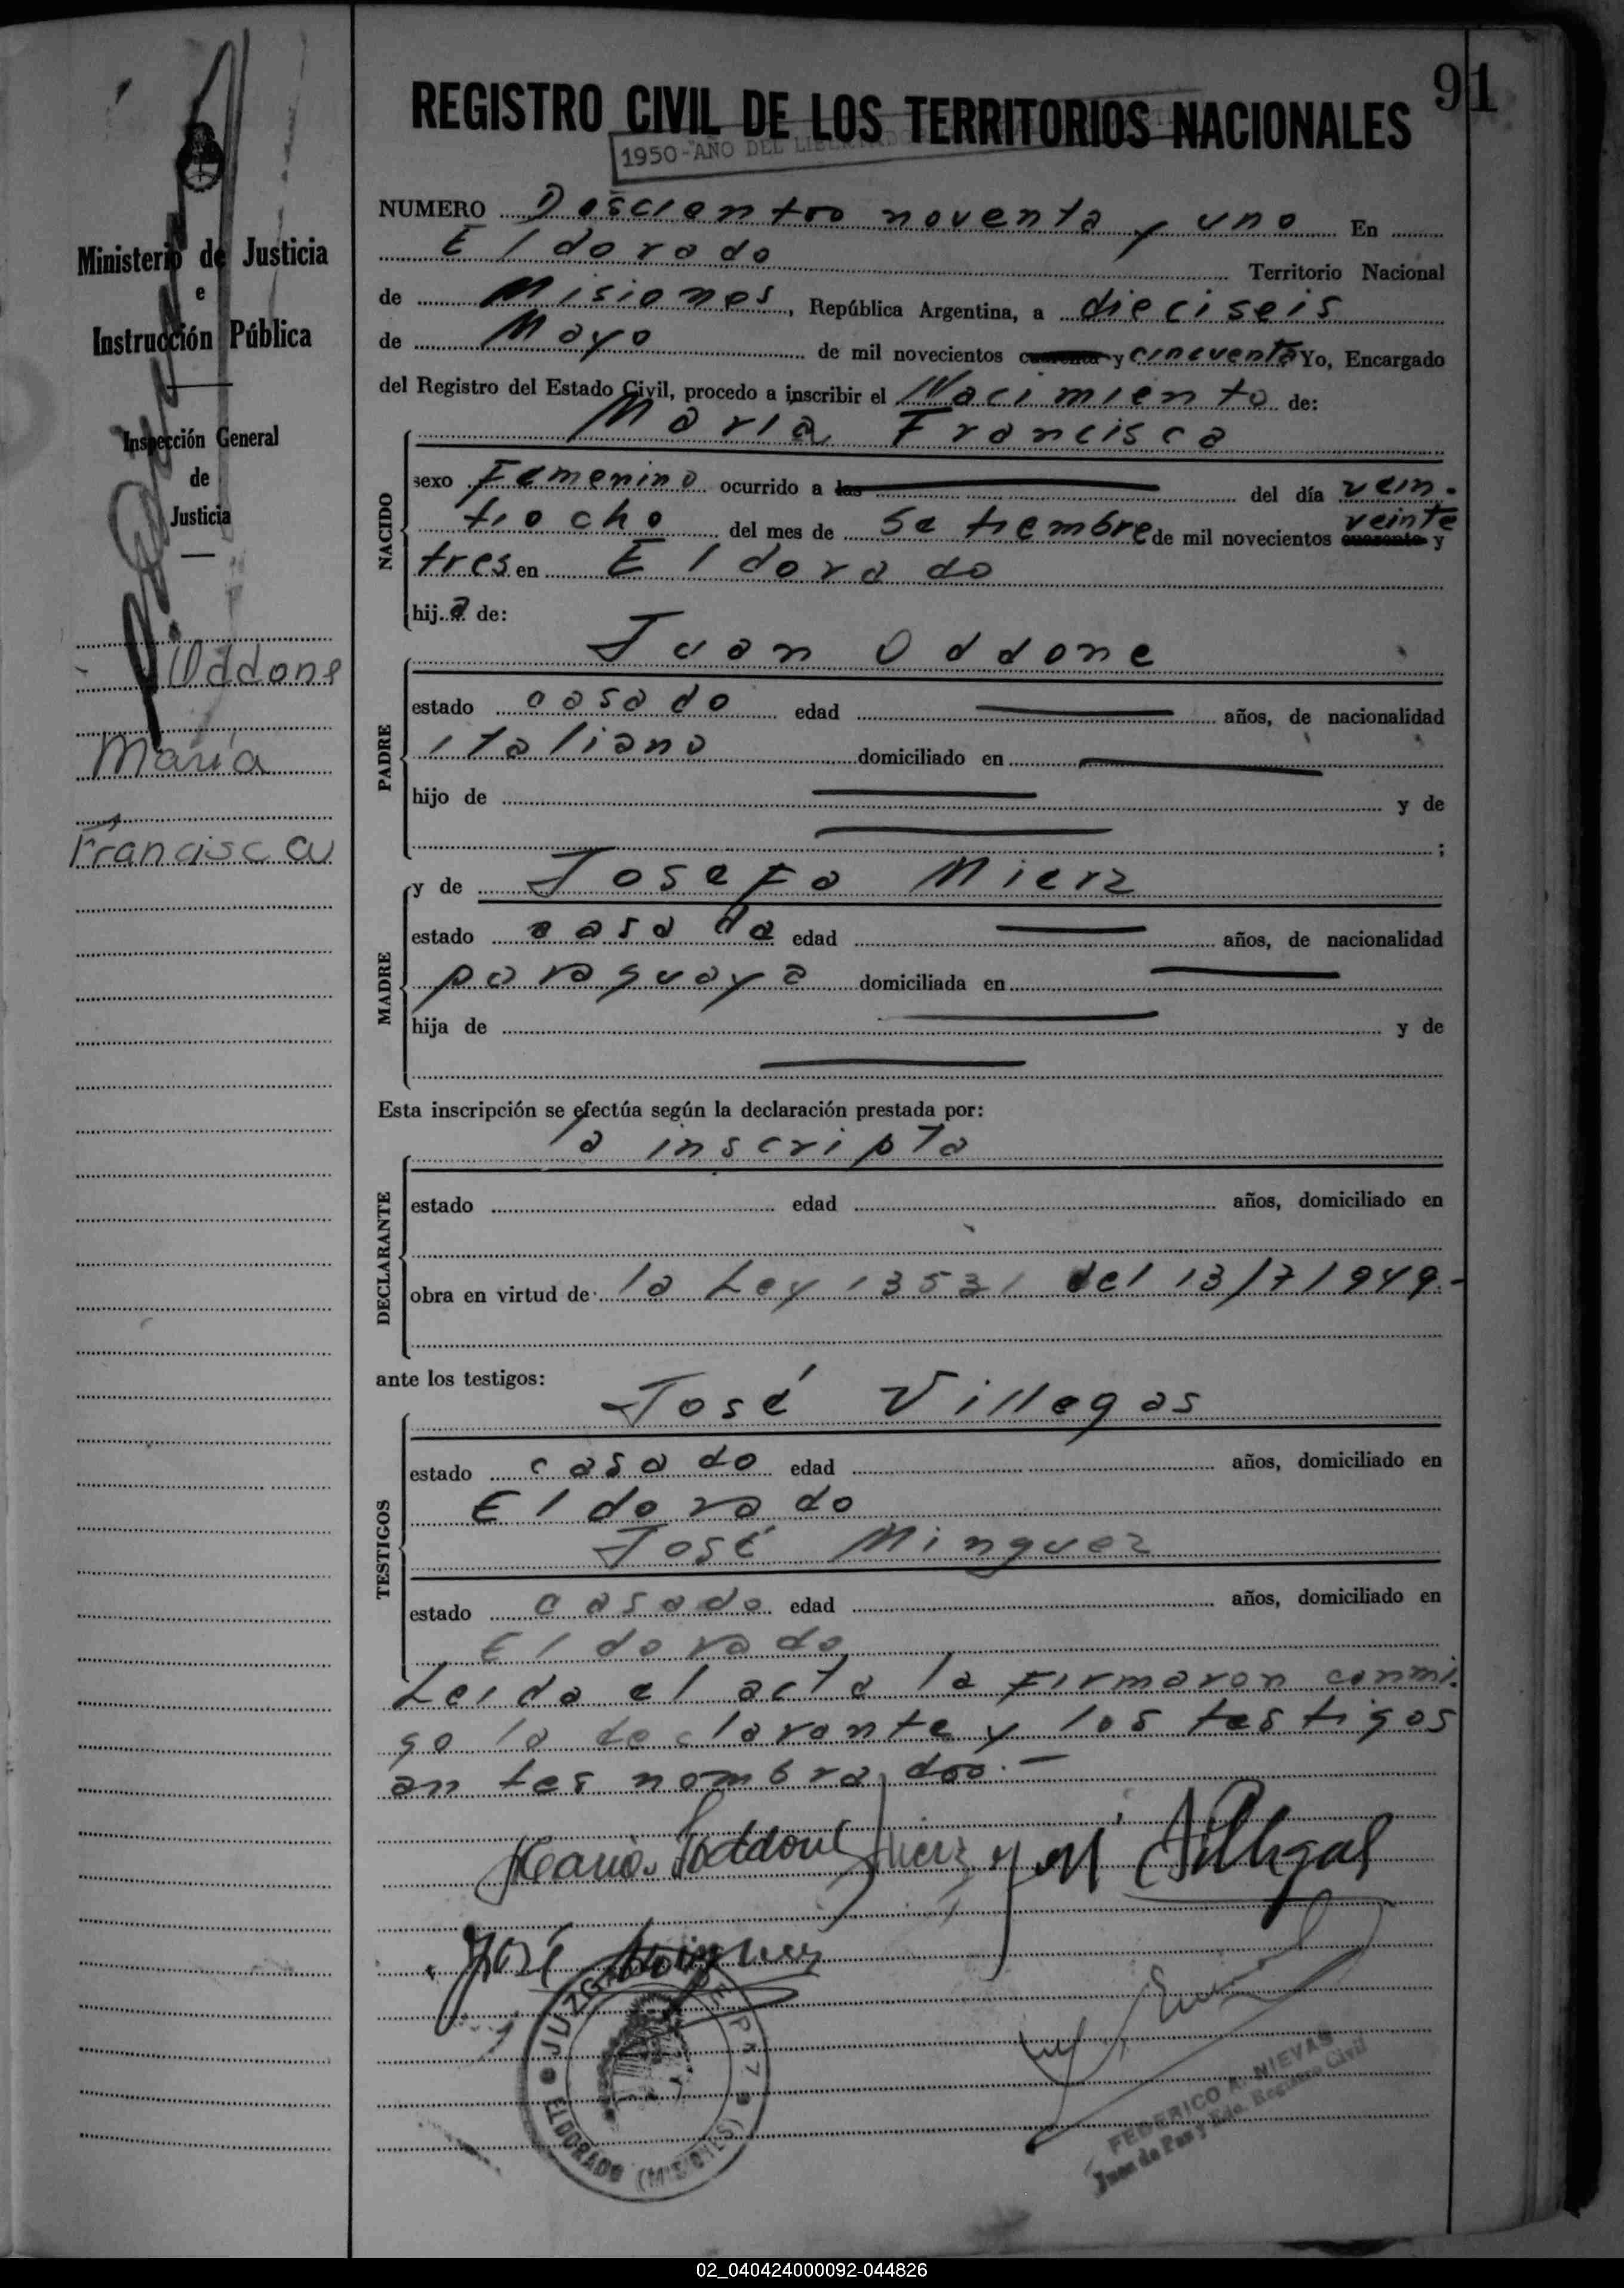 91
REGISTRO CIVIL DE LOS TERRITORIOS NACIONALES
1950-AÑO DEL
NUMERO Doscientos noventa y uno En
Eldorado Territorio Nacional
de Misiones, República Argentina, a dieciseis
de Mayo de mil novecientos cuarenta y cincuenta Yo, Encargado
del Registro del Estado Civil, procedo a inscribir el Nacimiento de:
María Francisca
NACIDO
sexo Femenino ocurrido a las del día vein-
tiocho del mes de Setiembre de mil novecientos cuarenta veinte y
tres en Eldorado
hija de:
PADRE
Juan Oddone
estado casado edad años, de nacionalidad
italiano domiciliado en
hijo de y de
;
MADRE
y de Josefa Mierz
estado casada edad años, de nacionalidad
paraguaya domiciliada en
hija de y de
Esta inscripción se efectúa según la declaración prestada por:
DECLARANTE
la inscripta
estado edad años, domiciliado en
obra en virtud de la Ley 13531 del 13/7/1949.-
ante los testigos:
TESTIGOS
José Villegas
estado casado edad años, domiciliado en
Eldorado
José Minguez
estado casado edad años, domiciliado en
Eldorado
Leida el acta la firmaron conmi-
go la declarante y los testigos
antes nombrados.-
José Minguez
JUZGADO DE PAZ
ELDORADO (MISIONES)
FEDERICO A. NIEVAS
Juez de Paz y Edo. Registro Civil
Ministerio de Justicia
e
Instrucción Pública
Inspección General
de
Justicia
Oddone
María
Francisca
02_040424000092-044826